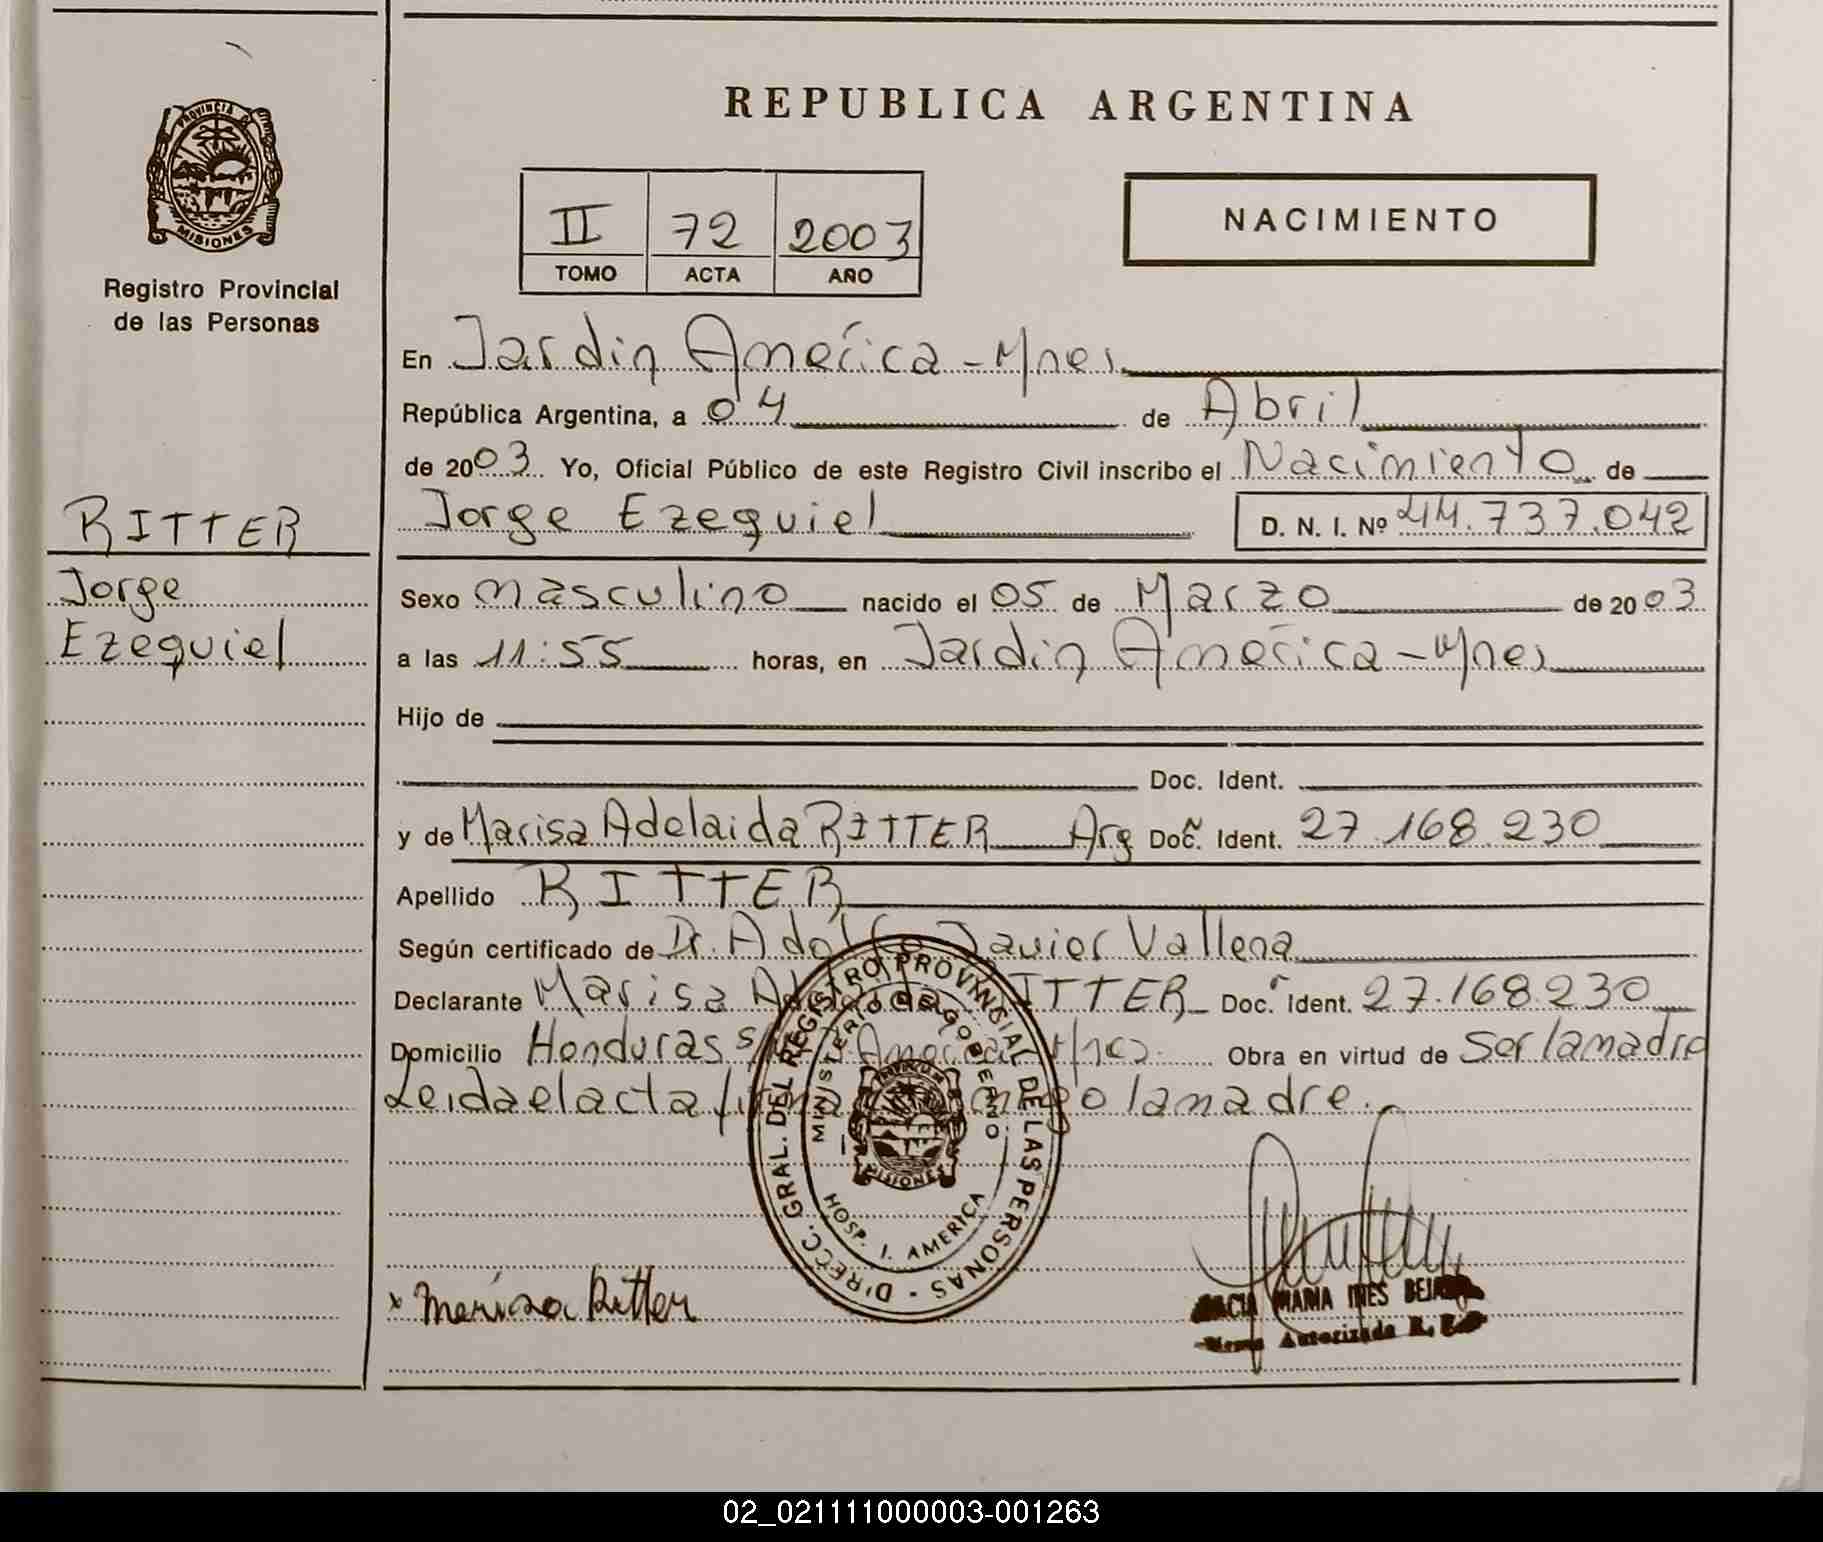 PROVINCIA DE
MISIONES
Registro Provincial
de las Personas
RITTER
Jorge
Ezequiel
REPUBLICA ARGENTINA
II 72 2003
TOMO ACTA AÑO
NACIMIENTO
En Jardin América - Mnes.
República Argentina, a 04 de Abril
de 2003 Yo, Oficial Público de este Registro Civil inscribo el Nacimiento de
Jorge Ezequiel D. N. I. Nº 44.737.042
Sexo masculino nacido el 05 de Marzo de 2003
a las 11:55 horas, en Jardin América - Mnes
Hijo de
Doc. Ident.
y de Marisa Adelaida RITTER Arg Doc. Ident. 27.168.230
Apellido RITTER
Según certificado de Dr. Adolfo Javier Vallena
Declarante Marisa Adelaida RITTER Doc. Ident. 27.168.230
Domicilio Honduras s/ America Mnes. Obra en virtud de Ser la madre
Leida el acta firma conmigo la madre.
DIRECC. GRAL. DEL REGISTRO PROVINCIAL DE LAS PERSONAS
MINISTERIO DE GOBIERNO
MISIONES
HOSP. I. AMERICA
x Marisa Ritter
MARIA INES
Autorizada
02_021111000003-001263